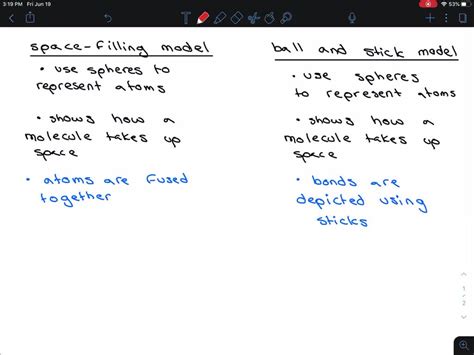 3:19 PM Fri Jun 19
53%
space-filling model
• use spheres to
represent atoms
• shows how a
molecule takes up
space
• atoms are fused
together
ball and stick model
• use spheres
to represent atoms
• shows how a
molecule takes up
space
• bonds are
depicted using
sticks
1
2